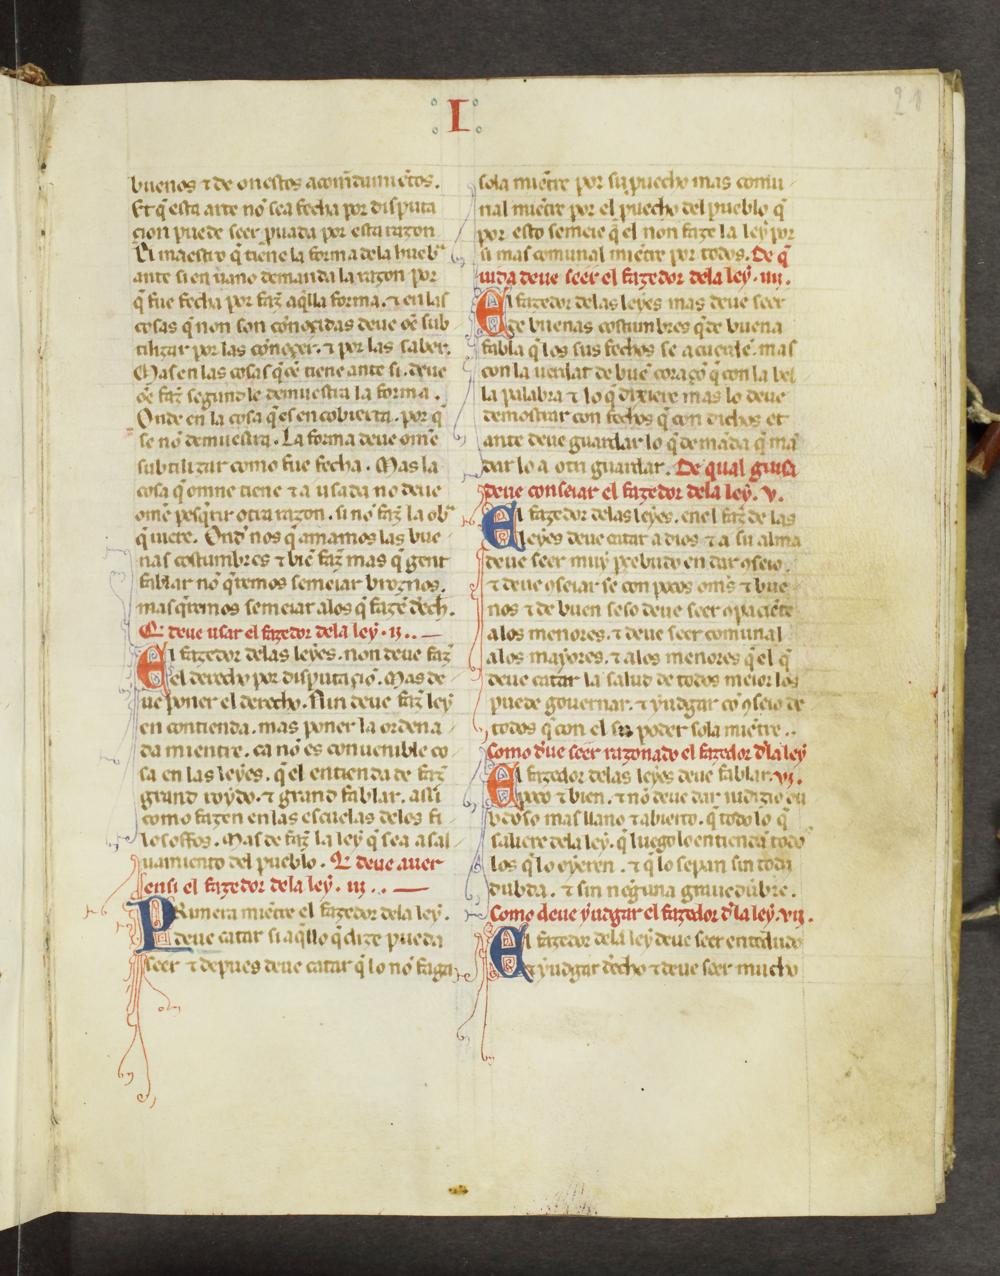 I
21
buenos ⁊ de onestos acom̃damiẽtos.
Et q̃ esta arte nõ sea fecha por disputa
cion puede seer puada por esta razon
El maestro q̃ tiene la forma dela hueb
ante si en uano demanda la razon por
q̃ fue fecha por faz̃ aq̃lla forma. ⁊ en las
cosas q̃ non son cõnoçidas deue oẽ sub
tilizar por las cõnoçer. ⁊ por las saber.
Mas en las cosas q̃ oẽ tiene ante si. deue
oẽ faz̃ segund le demuestra la forma.
Onde en la cosa q̃ es encobierta. por q̃
se nõ demuestra. La forma deue om̃e
subtilizar como fue fecha. Mas la
cosa q̃ omne tiene ⁊ a usada no deue
om̃e pesq̃rir otra razon. si nõ faz̃ la ob
q̃ uiere. Ond̃ nos q̃ amamos las bue
nas costumbres ⁊ biẽ faz̃ mas q̃ gent
fablar nõ q̃remos semeiar
mas q̃remos semeiar alos q̃ fazẽ d̃ech.
deue usar el fazedor dela ley. ii..
El fazedor delas leyes. non deue faz̃
el derecho por disputaçiõ. Mas de
ue poner el derecho. Nin deue faz̃ ley
en contienda. mas poner la ordena
da mientre. ca nõ es conuenible co
sa en las leyes. q̃ el entienda de faz̃
grand roydo. ⁊ grand fablar. assi
como fazen en las escuelas delos fi
losoffos. Mas de faz̃ la ley q̃ sea a sal
uamiento del pueblo. Q̃ deue auer
ensi el fazedor dela ley. iii..
PRimera miẽtre el fazedor dela ley.
deue catar si aq̃llo q̃ dize pueda
seer ⁊ depues deue catar q̃ lo nõ faga
sola miẽtre por su puecho mas comu
nal miẽtre por el puecho del pueblo q̃
por esto semeie q̃ el non faze la ley por
si mas comunal miẽtre por todos. De q̃
uida deue seer el fazedor dela ley. iiii.
El fazedor delas leyes mas deue seer
de buenas costumbres q̃ de buena
fabla q̃ los sus fechos se acuerdẽ. mas
con la uerdat de buẽ coraçõ q̃ con la bel
la palabra ⁊ lo q̃ dixiere mas lo deue
demostrar con fechos q̃ con dichos et
ante deue guardar lo q̃ demãda q̃ mã
dar lo a otri guardar. De qual guisa
deue conseiar el fazedor dela ley. v.
El fazedor delas leyes. en el faz̃ de las
leyes deue catar a dios ⁊ a su alma
deue seer muy prebudo en dar ꝯseio.
⁊ deue ꝯseiar se con pocos om̃s ⁊ bue
nos ⁊ de buen seso deue seer ꝯpaciẽte
alos menores. ⁊ deue seer comunal
alos mayores. ⁊ alos menores q̃ el q̃
deue catar la salud de todos meior los
puede gouernar. ⁊ yudgar cõ ꝯseio de
todos q̃ con el su poder sola miẽtre..
Como d̃ue seer razonado el fazedor d̃la ley
El fazedor delas leyes deue fablar. vi.
poco ⁊ bien. ⁊ nõ deue dar iudizio du
bdoso mas llano ⁊ abierto. q̃ todo lo q̃
saliere dela ley. q̃ luego lo entiendã todo
los q̃ lo oyeren. ⁊ q̃ lo sepan sin toda
dubda. ⁊ sin neguna grauedũbre.
Como deue yudgar el fazedor d̃la ley. vii.
El fazedor dela ley deue seer entẽdudo
en yudgar d̃echo ⁊ deue seer mucho